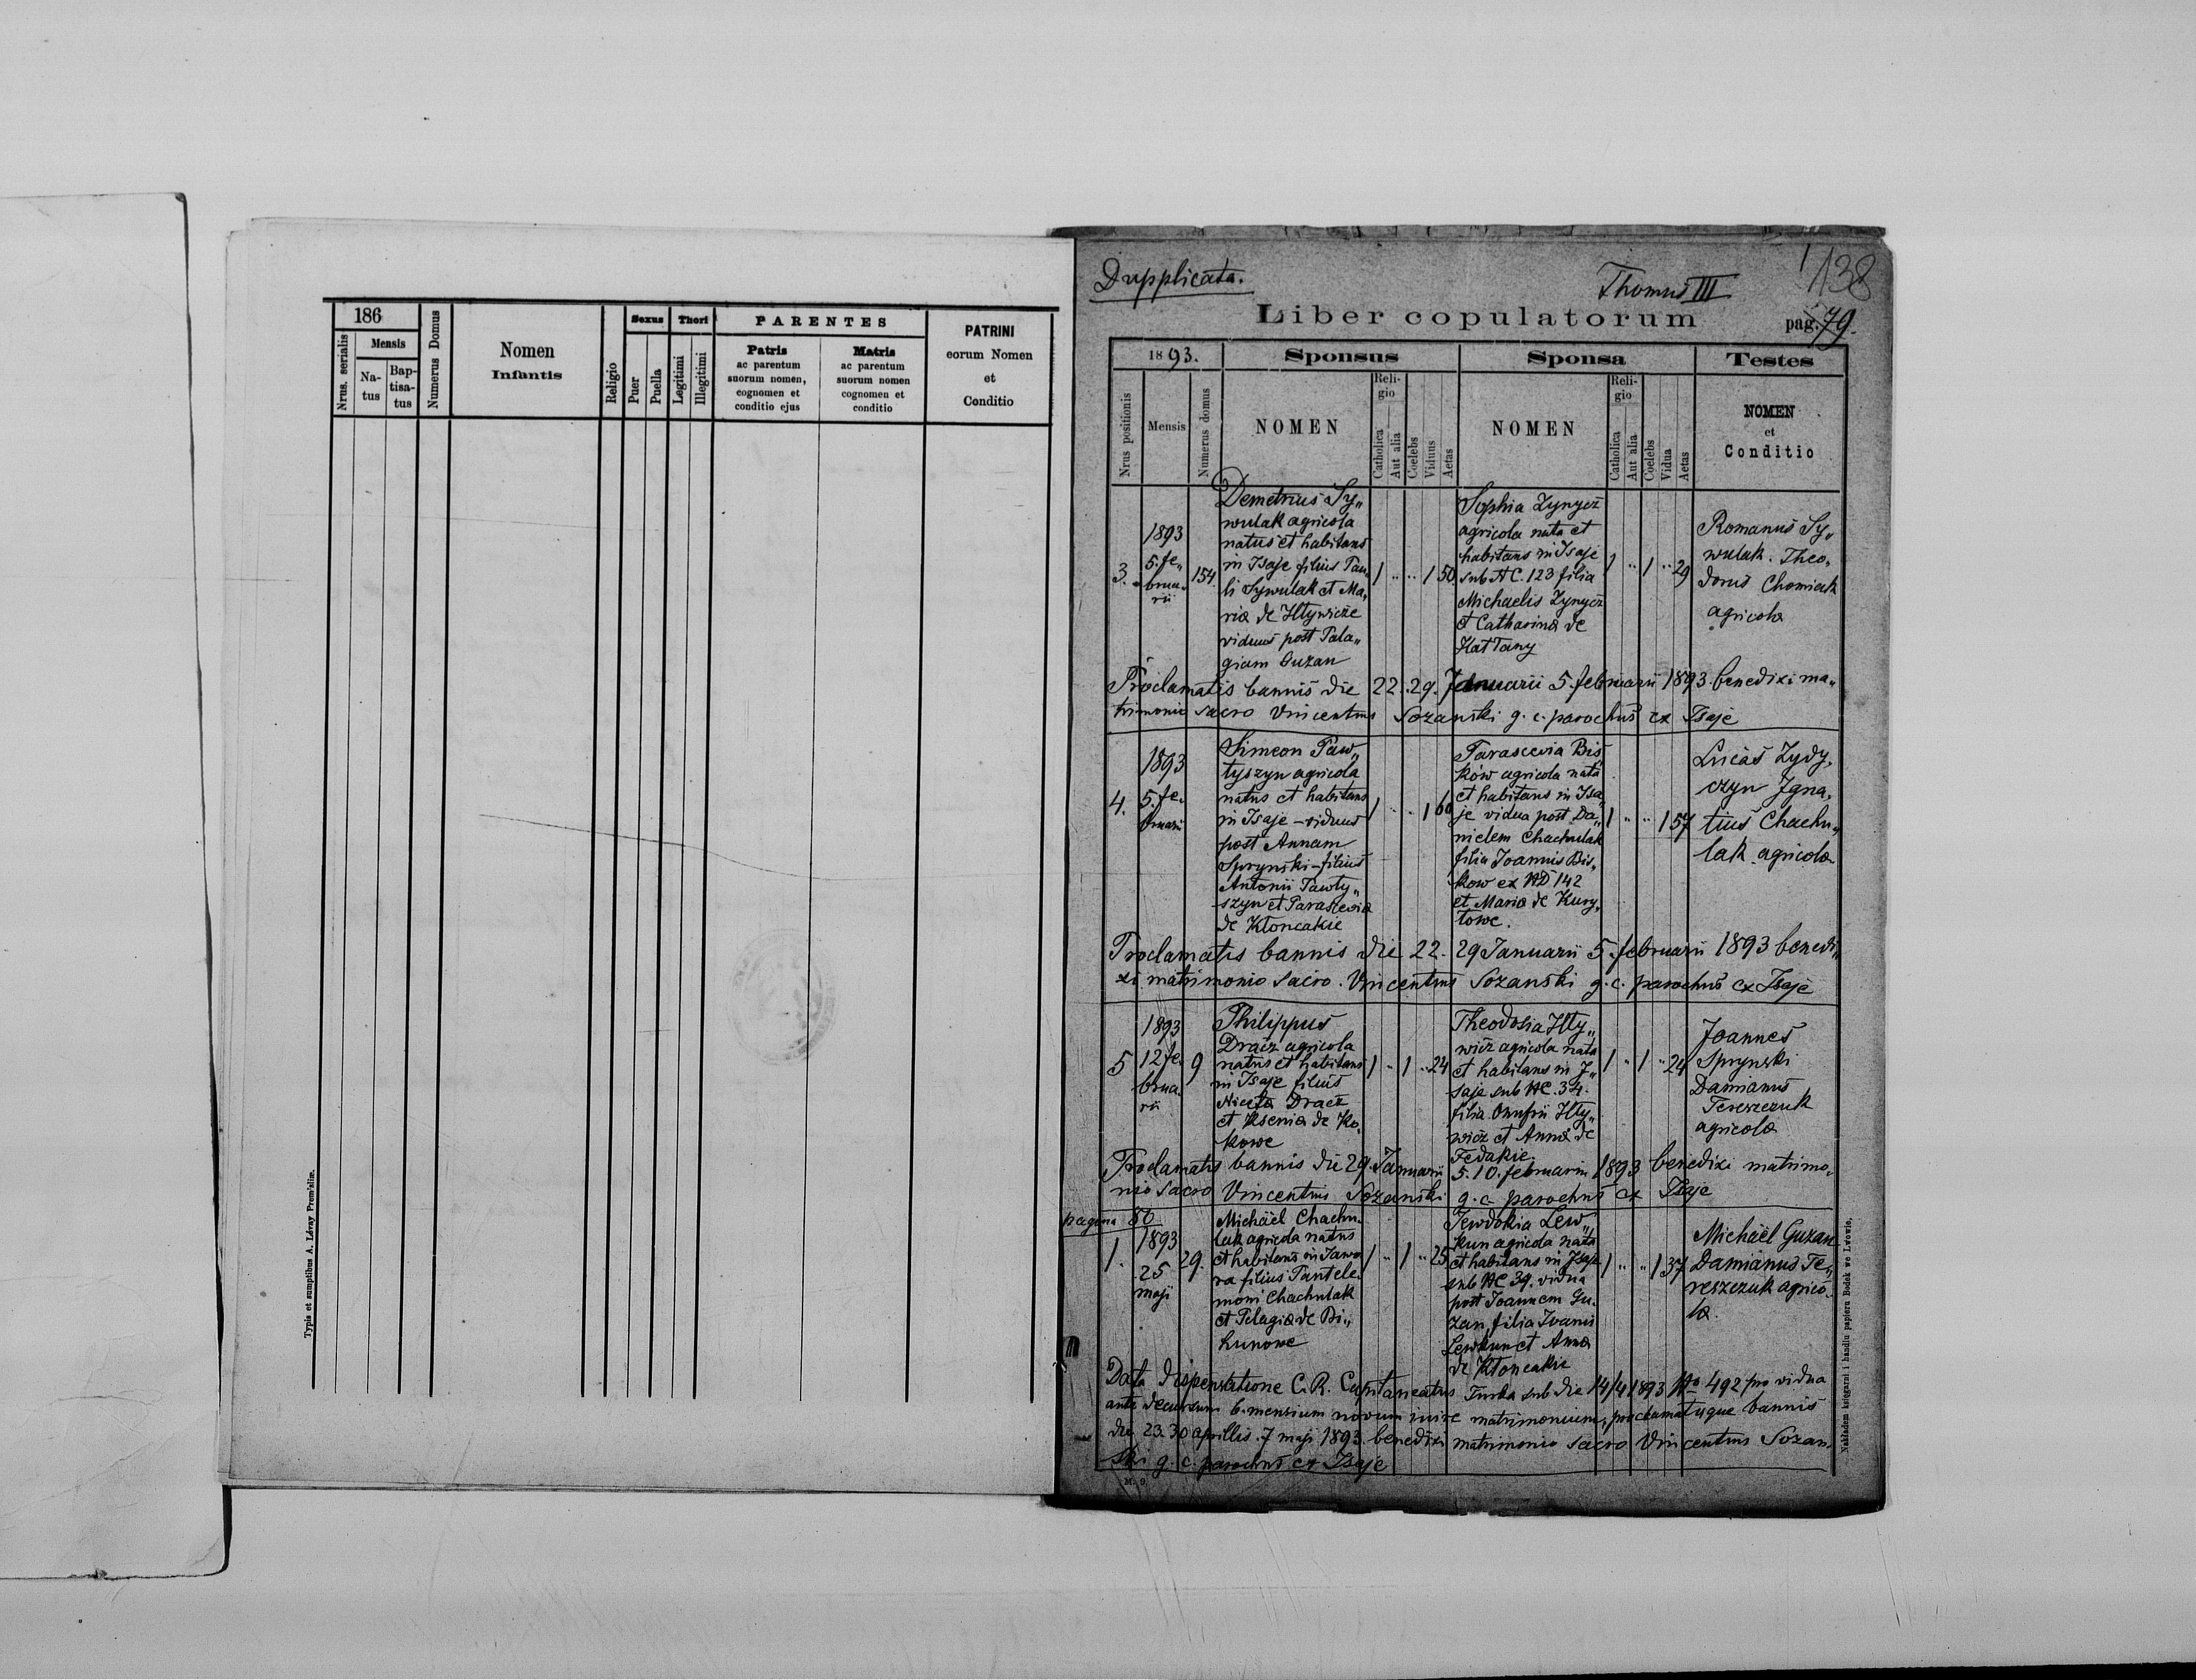 186
Nrus. serialis
Mensis
Na-
tus
Bap-
tisa-
tus
Numerus Domus
Nomen
Infantis
Religio
Sexus
Puer
Puella
Thori
Legitimi
Illegitimi
PARENTES
Patris
ac parentum
suorum nomen,
cognomen et
conditio ejus
Matris
ac parentum
suorum nomen
cognomen et
conditio
PATRINI
eorum Nomen
et
Conditio
Typis et sumptibus A. Lévay Premisliæ.
Dupplicata.
Thomus III
138
Liber copulatorum
pag. 79.
1893.
Sponsus
Sponsa
Testes
Nrus positionis
Mensis
Numerus domus
NOMEN
Reli-
gio
Catholica
Aut alia
Coelebs
Viduus
Aetas
NOMEN
Reli-
gio
Catholica
Aut alia
Coelebs
Vidua
Aetas
NOMEN
et
Conditio
3.
1893
5. fe„
brua-
rii
154.
Demetrius Sy„
wulak agricola
natus et habitans
in Isaje filius Pau„
li Sywulak et Ma„
ria de Iltywicze
viduus post Pala„
giam Guzan
1 „ „ 1 50
Sophia Zynycz
agricola nata et
habitans in Isaje
sub NC. 123 filia
Michaelis Zynycz
et Catharina de
Hattany
1 „ 1 „ 29
Romanus Sy„
wulak. Theo„
dorus Chomiak
agricola
Proclamatis bannis die 22. 29. Januarii 5. februarii 1893. benedixi ma„
trimonio sacro Vincentius Sozanski g. c. parochus ex Isaje
4.
1893
5. fe-
bruarii
Simeon Paw„
tyszyn agricola
natus et habitans
in Isaje - viduus
post Annam
Sprynski - filius
Antonii Pawty„
szyn et Parascevia
de Kłoncakie
1 „ „ 1 60
Parascevia Bis„
ków agricola nata
et habitans in Isa„
je vidua post Da„
nielem Chachulak
filia Joannis Bis„
kow ex ND 142
et Maria de Kury„
towe.
1 „ „ 1 57
Lucas Zydy„
czyn Igna„
tius Chachu„
lak agricola
Proclamatis bannis die 22. 29 Januarii 5. februarii 1893 benedi„
xi matrimonio sacro. Vincentius Sozanski g. c. parochus ex Isaje
5
1893
12 fe-
brua-
rii
9
Philippus
Dracz agricola
natus et habitans
in Isaje filius
Nicita Dracz
et Ksenia de Ko„
kowe
1 „ 1 „ 24
Theodosia Ilty„
wicz agricola nata
et habitans in I„
saje sub NC. 34.
filia Onufrii Ilty„
wicz et Anna de
Fedakie.
1 „ 1 „ 24
Joannes
Sprynski
Damianus
Tereszczuk
agricola
Proclamatis bannis die 29. Januarii 5. 10. februarii 1893 benedixi matrimo„
nio sacro Vincentius Sozanski g. c. parochus ex Isaje
pagina 80
1.
1893
25
maji
29.
Michaël Chachu„
lak agricola natus
et habitans in Jawo
ra filius Pantele„
moni Chachulak
et Pelagia de Bi„
hunowe
1 „ 1 „ 25
Jewdokia Lew„
kun agricola nata
et habitans in Isaje
sub NC 39. vidua
post Joannem Gu„
zan, filia Ivanis
Lewkun et Anna
de Kłoncakie
1 „ „ 1 37
Michaël Guzan
Damianus Te„
reszczuk agrico„
la.
Data dispensatione C. R. Capitaneatus Turka sub die 14/4 1893 No 492 pro vidua
ante decursum 6. mensium novum inire matrimonium, proclamatisque bannis
die 23. 30 aprillis. 7 maji 1893. benedixi matrimonio sacro Vincentius Sozan„
ski g. c. parochus ex Isaje
M. 9.
Nakładem księgarni i handlu papieru Bodek we Lwowie.